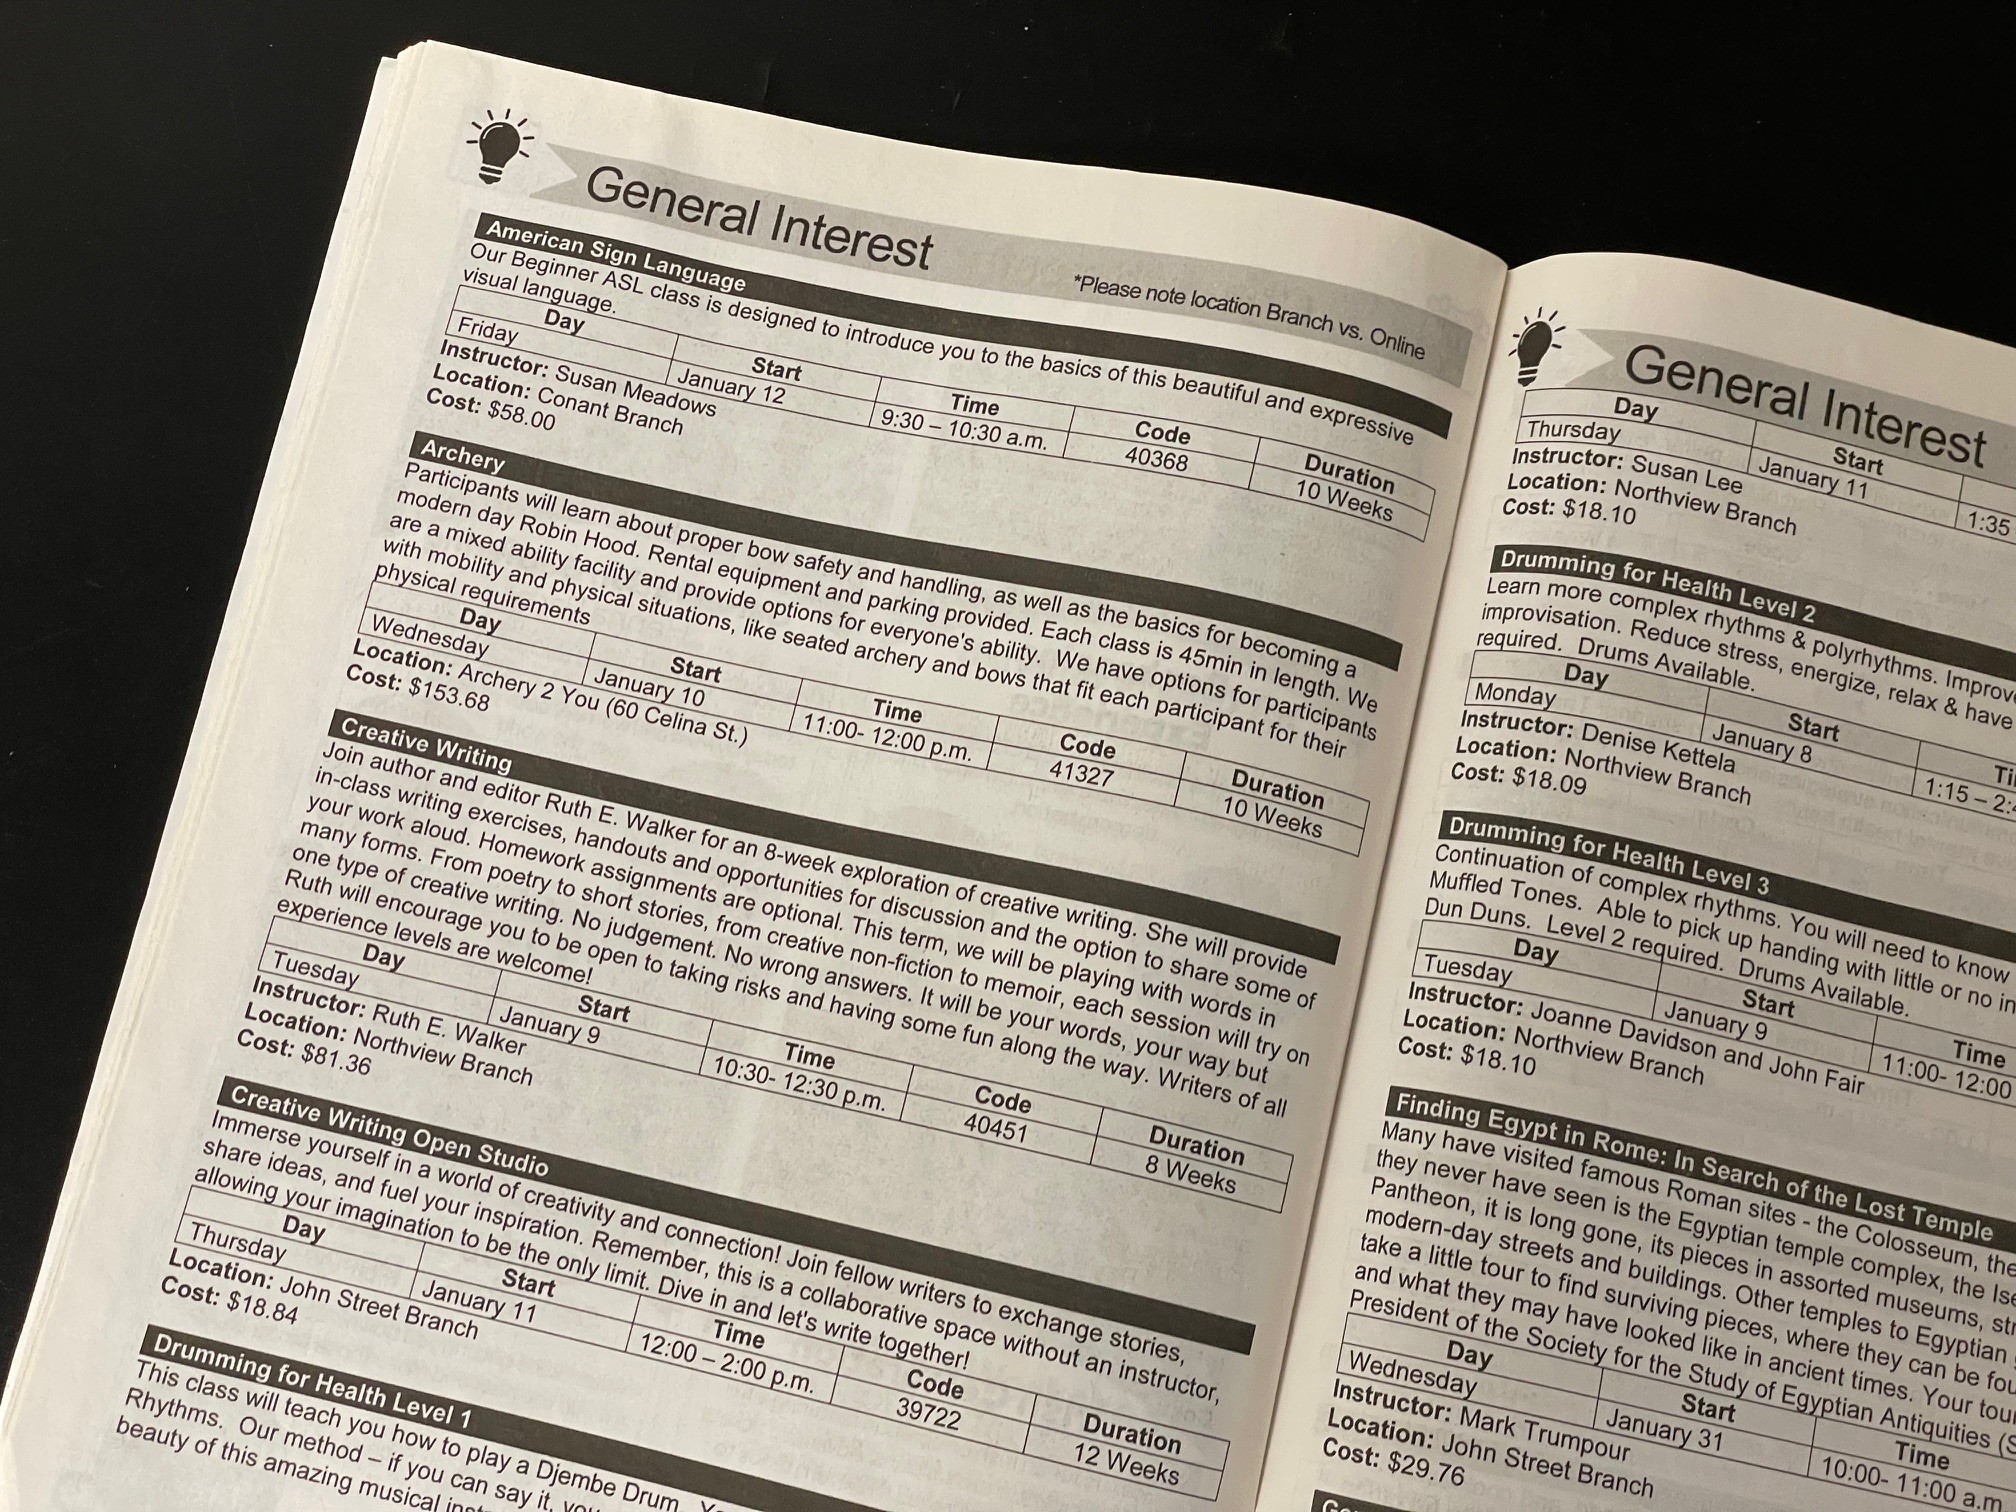 General Interest
*Please note location Branch vs. Online
American Sign Language
Our Beginner ASL class is designed to introduce you to the basics of this beautiful and expressive
visual language.
Day Start Time Code Duration
Friday January 12 9:30 – 10:30 a.m. 40368 10 Weeks
Instructor: Susan Meadows
Location: Conant Branch
Cost: $58.00
Archery
Participants will learn about proper bow safety and handling, as well as the basics for becoming a
modern day Robin Hood. Rental equipment and parking provided. Each class is 45min in length. We
are a mixed ability facility and provide options for everyone's ability. We have options for participants
with mobility and physical situations, like seated archery and bows that fit each participant for their
physical requirements
Day Start Time Code Duration
Wednesday January 10 11:00- 12:00 p.m. 41327 10 Weeks
Location: Archery 2 You (60 Celina St.)
Cost: $153.68
Creative Writing
Join author and editor Ruth E. Walker for an 8-week exploration of creative writing. She will provide
in-class writing exercises, handouts and opportunities for discussion and the option to share some of
your work aloud. Homework assignments are optional. This term, we will be playing with words in
many forms. From poetry to short stories, from creative non-fiction to memoir, each session will try on
one type of creative writing. No judgement. No wrong answers. It will be your words, your way but
Ruth will encourage you to be open to taking risks and having some fun along the way. Writers of all
experience levels are welcome!
Day Start Time Code Duration
Tuesday January 9 10:30- 12:30 p.m. 40451 8 Weeks
Instructor: Ruth E. Walker
Location: Northview Branch
Cost: $81.36
Creative Writing Open Studio
Immerse yourself in a world of creativity and connection! Join fellow writers to exchange stories,
share ideas, and fuel your inspiration. Remember, this is a collaborative space without an instructor,
allowing your imagination to be the only limit. Dive in and let's write together!
Day Start Time Code Duration
Thursday January 11 12:00 – 2:00 p.m. 39722 12 Weeks
Location: John Street Branch
Cost: $18.84
Drumming for Health Level 1
This class will teach you how to play a Djembe Drum.
Rhythms. Our method – if you can say it,
beauty of this amazing musical
General Interest
Day Start
Thursday January 11 1:35
Instructor: Susan Lee
Location: Northview Branch
Cost: $18.10
Drumming for Health Level 2
Learn more complex rhythms & polyrhythms. Improv
improvisation. Reduce stress, energize, relax & have
required. Drums Available.
Day Start Ti
Monday January 8 1:15 – 2:4
Instructor: Denise Kettela
Location: Northview Branch
Cost: $18.09
Drumming for Health Level 3
Continuation of complex rhythms. You will need to know
Muffled Tones. Able to pick up handing with little or no in
Dun Duns. Level 2 required. Drums Available.
Day Start Time
Tuesday January 9 11:00- 12:00
Instructor: Joanne Davidson and John Fair
Location: Northview Branch
Cost: $18.10
Finding Egypt in Rome: In Search of the Lost Temple
Many have visited famous Roman sites - the Colosseum, the
they never have seen is the Egyptian temple complex, the Ise
Pantheon, it is long gone, its pieces in assorted museums, str
modern-day streets and buildings. Other temples to Egyptian
take a little tour to find surviving pieces, where they can be fou
and what they may have looked like in ancient times. Your tour
President of the Society for the Study of Egyptian Antiquities (S
Day Start Time
Wednesday January 31 10:00- 11:00 a.m
Instructor: Mark Trumpour
Location: John Street Branch
Cost: $29.76